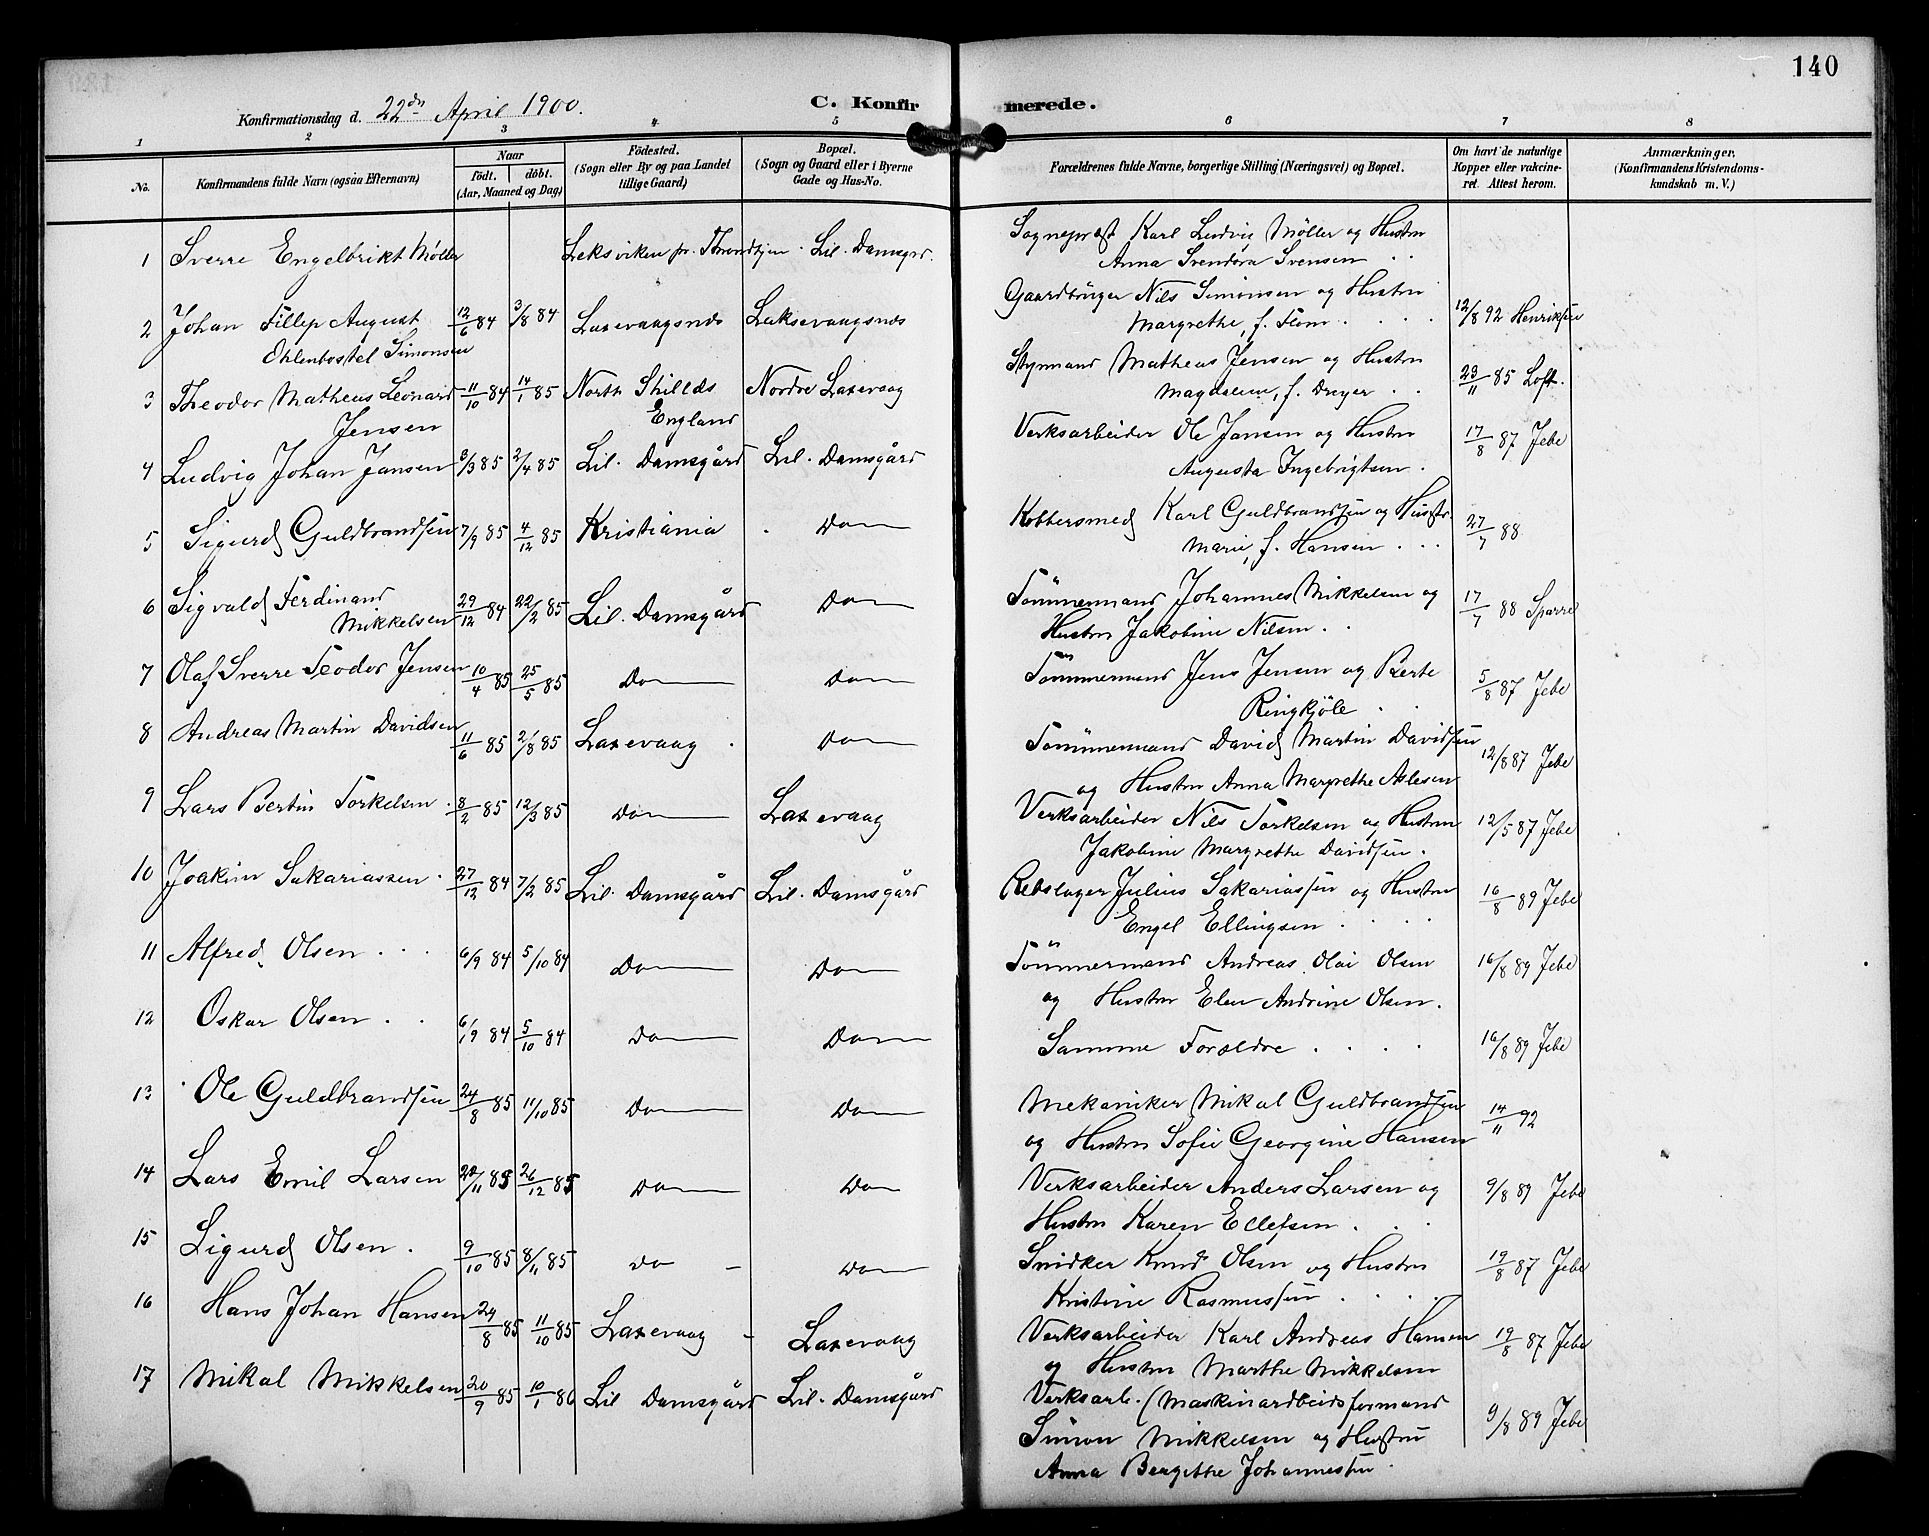 140
Konfirmationsdag d. 22de April 1900.
C. Konfirmerede.
1 2 3 4 5 6 7 8
No.
Konfirmandens fulde Navn (ogsaa Efternavn)
Naar
födt. döbt.
(Aar, Maaned og Dag)
Födested.
(Sogn eller By og paa Landet
tillige Gaard)
Bopæl.
(Sogn og Gaard eller i Byerne
Gade og Hus-No.
Forældrenes fulde Navne, borgerlige Stilling (Næringsvei) og Bopæl.
Om havt de naturlige
Kopper eller vakcine-
ret. Attest herom.
Anmærkninger.
(Konfirmandens Kristendoms-
kundskab m. V.)
1 Sverre Engelbrikt Möller Leksviken pr. Throndhjem Lil. Damsgrd. Sogneprest Karl Ludvig Möller og Hustru
Anna Svendora Svensen
2 Johan Fillep August 12/6 84 3/8 84 Laxevaagsnes Laksevaagsnes Gaardbruger Nils Simonsen og Hustru 12/8 92 Henriksen
Ohlenbostel Simonsen Margrethe, f. Flom
3 Theodor Matheus Leonard 11/10 84 14/1 85 North Shillds Nordre Laxevaag Styrmand Matheus Jensen og Hustru 23/11 85 Loft.
Jensen England Magdalene, f. Dreyer
4 Ludvig Johan Jansen 3/3 85 2/4 85 Lil. Damsgård Lil. Damsgård Verksarbeider Ole Jansen og Hustru 17/8 87 Jebe
Augusta Ingebrigtsen.
5 Sigurd Guldbrandsen 7/9 85 4/12 85 Kristiania Do Kobbersmed Karl Guldbrandsen og Hustr. 27/7 88
Marie, f. Hansen
6 Sigvald Ferdinand 29/12 84 22/2 85 Lil. Damsgård Do Tömmermand Johannes Mikkelsen og 17/7 88 Sparre
Mikkelsen Hustru Jakobine Nilsen.
7 Olaf Sverre Teodor Jensen 10/4 85 25/5 85 Do Do Tömmermand Jens Jensen og Berte 5/8 87 Jebe
Ringkjöle
8 Andreas Martin Davidsen 11/6 85 2/8 85 Laxevaag Do Tömmermand David Martin Davidsen 12/8 87 Jebe
og Hustru Anna Margrethe Aslesen
9 Lars Bertin Torkelsen. 8/2 85 12/3 85 Do Laxevaag Verksarbeider Nils Torkelsen og Hustru 12/5 87 Jebe
Jakobine Margrethe Davidsen.
10 Joakim Sakariassen. 27/12 84 7/2 85 Lil. Damsgård Lil. Damsgård Rebslager Julius Sakariassen og Hustru 16/8 89 Jebe
Engel Ellingsen
11 Alfred Olsen 6/9 84 5/10 84 Do Do Tömmermand Andreas Olai Olsen 16/8 89 Jebe
og Hustru Elen Andrine Olsen.
12 Oskar Olsen 6/9 84 5/10 84 Do Do Samme Forældre 16/8 89 Jebe
13 Ole Guldbrandsen 24/8 85 11/10 85 Do Do Mekaniker Mikal Guldbrandsen 14/11 92
og Hustru Sofie Georgine Hansen
14 Lars Emil Larsen 20/11 85 26/12 85 Do Do Verksarbeider Anders Larsen og 9/8 89 Jebe
Hustru Karen Ellefsen
15 Sigurd Olsen. 9/10 85 8/11 85 Do Do Snidker Knud Olsen og Hustru 19/8 87 Jebe
Kristine Rasmussen
16 Hans Johan Hansen 24/8 85 11/10 85 Laxevaag Laxevaag Verksarbeider Karl Andreas Hansen 19/8 87 Jebe
og Hustru Marthe Mikkelsen
17 Mikal Mikkelsen 20/9 85 10/1 86 Lil Damsgård Lil. Damsgård Verksarb. (Maskinardbeidsformand 9/8 89 Jebe
Simon Mikkelsen og Hustru
Anna Bergithe Johannessen